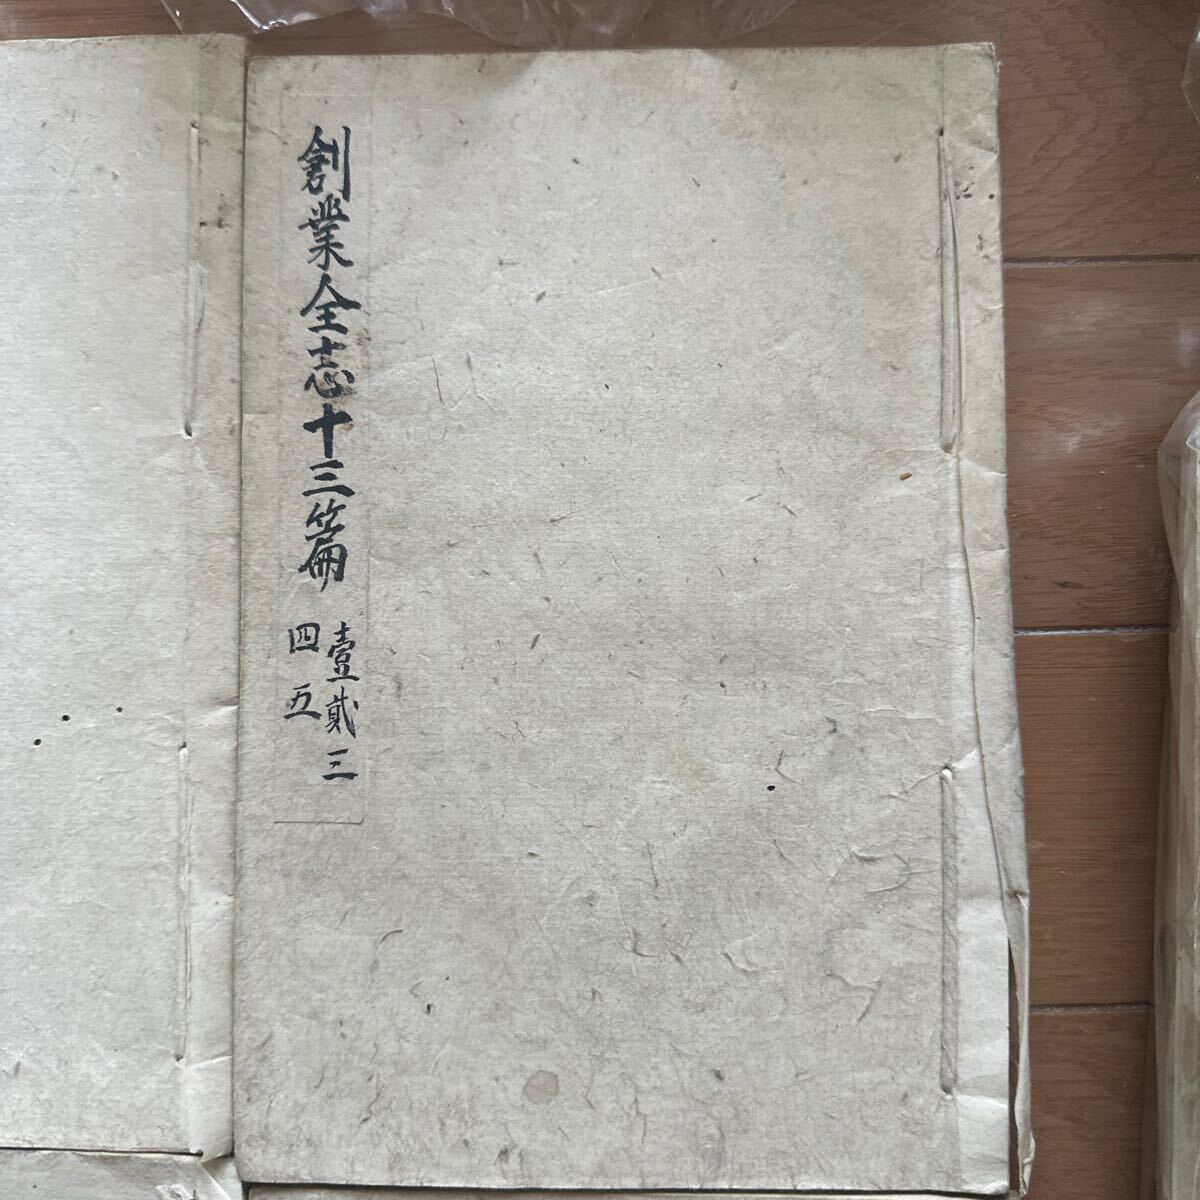 創業全志十三篇
壹貳三
四五